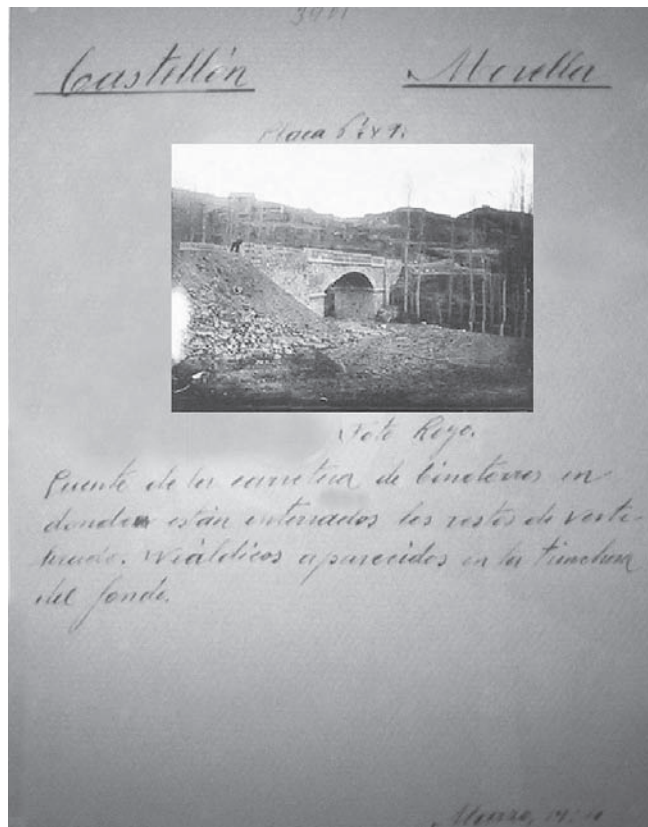 Castellón Morella
Placa 6½ x 9.
Foto Royo.
Puente de la carretera de Cinctorres en
donde están enterrados los restos de verte-
brado. Wiáldicos aparecidos en la trinchera
del fondo.